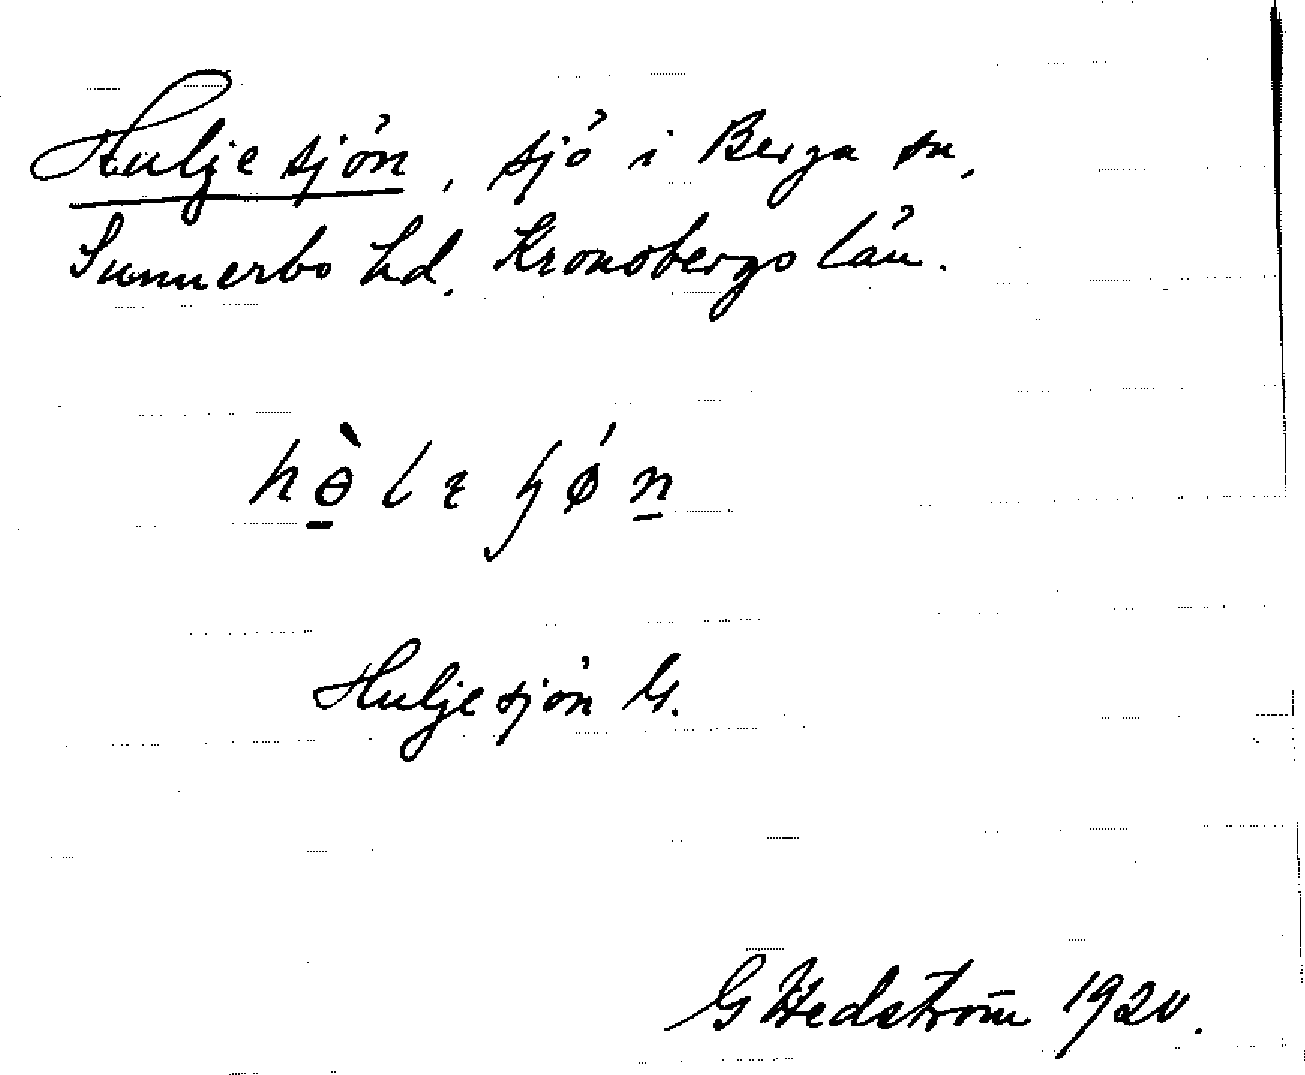 Huljesjön, sjö i Berga sn,
Sunnerbo hd. Kronobergs län.
Huljesjön G.
G Hedström 1920.